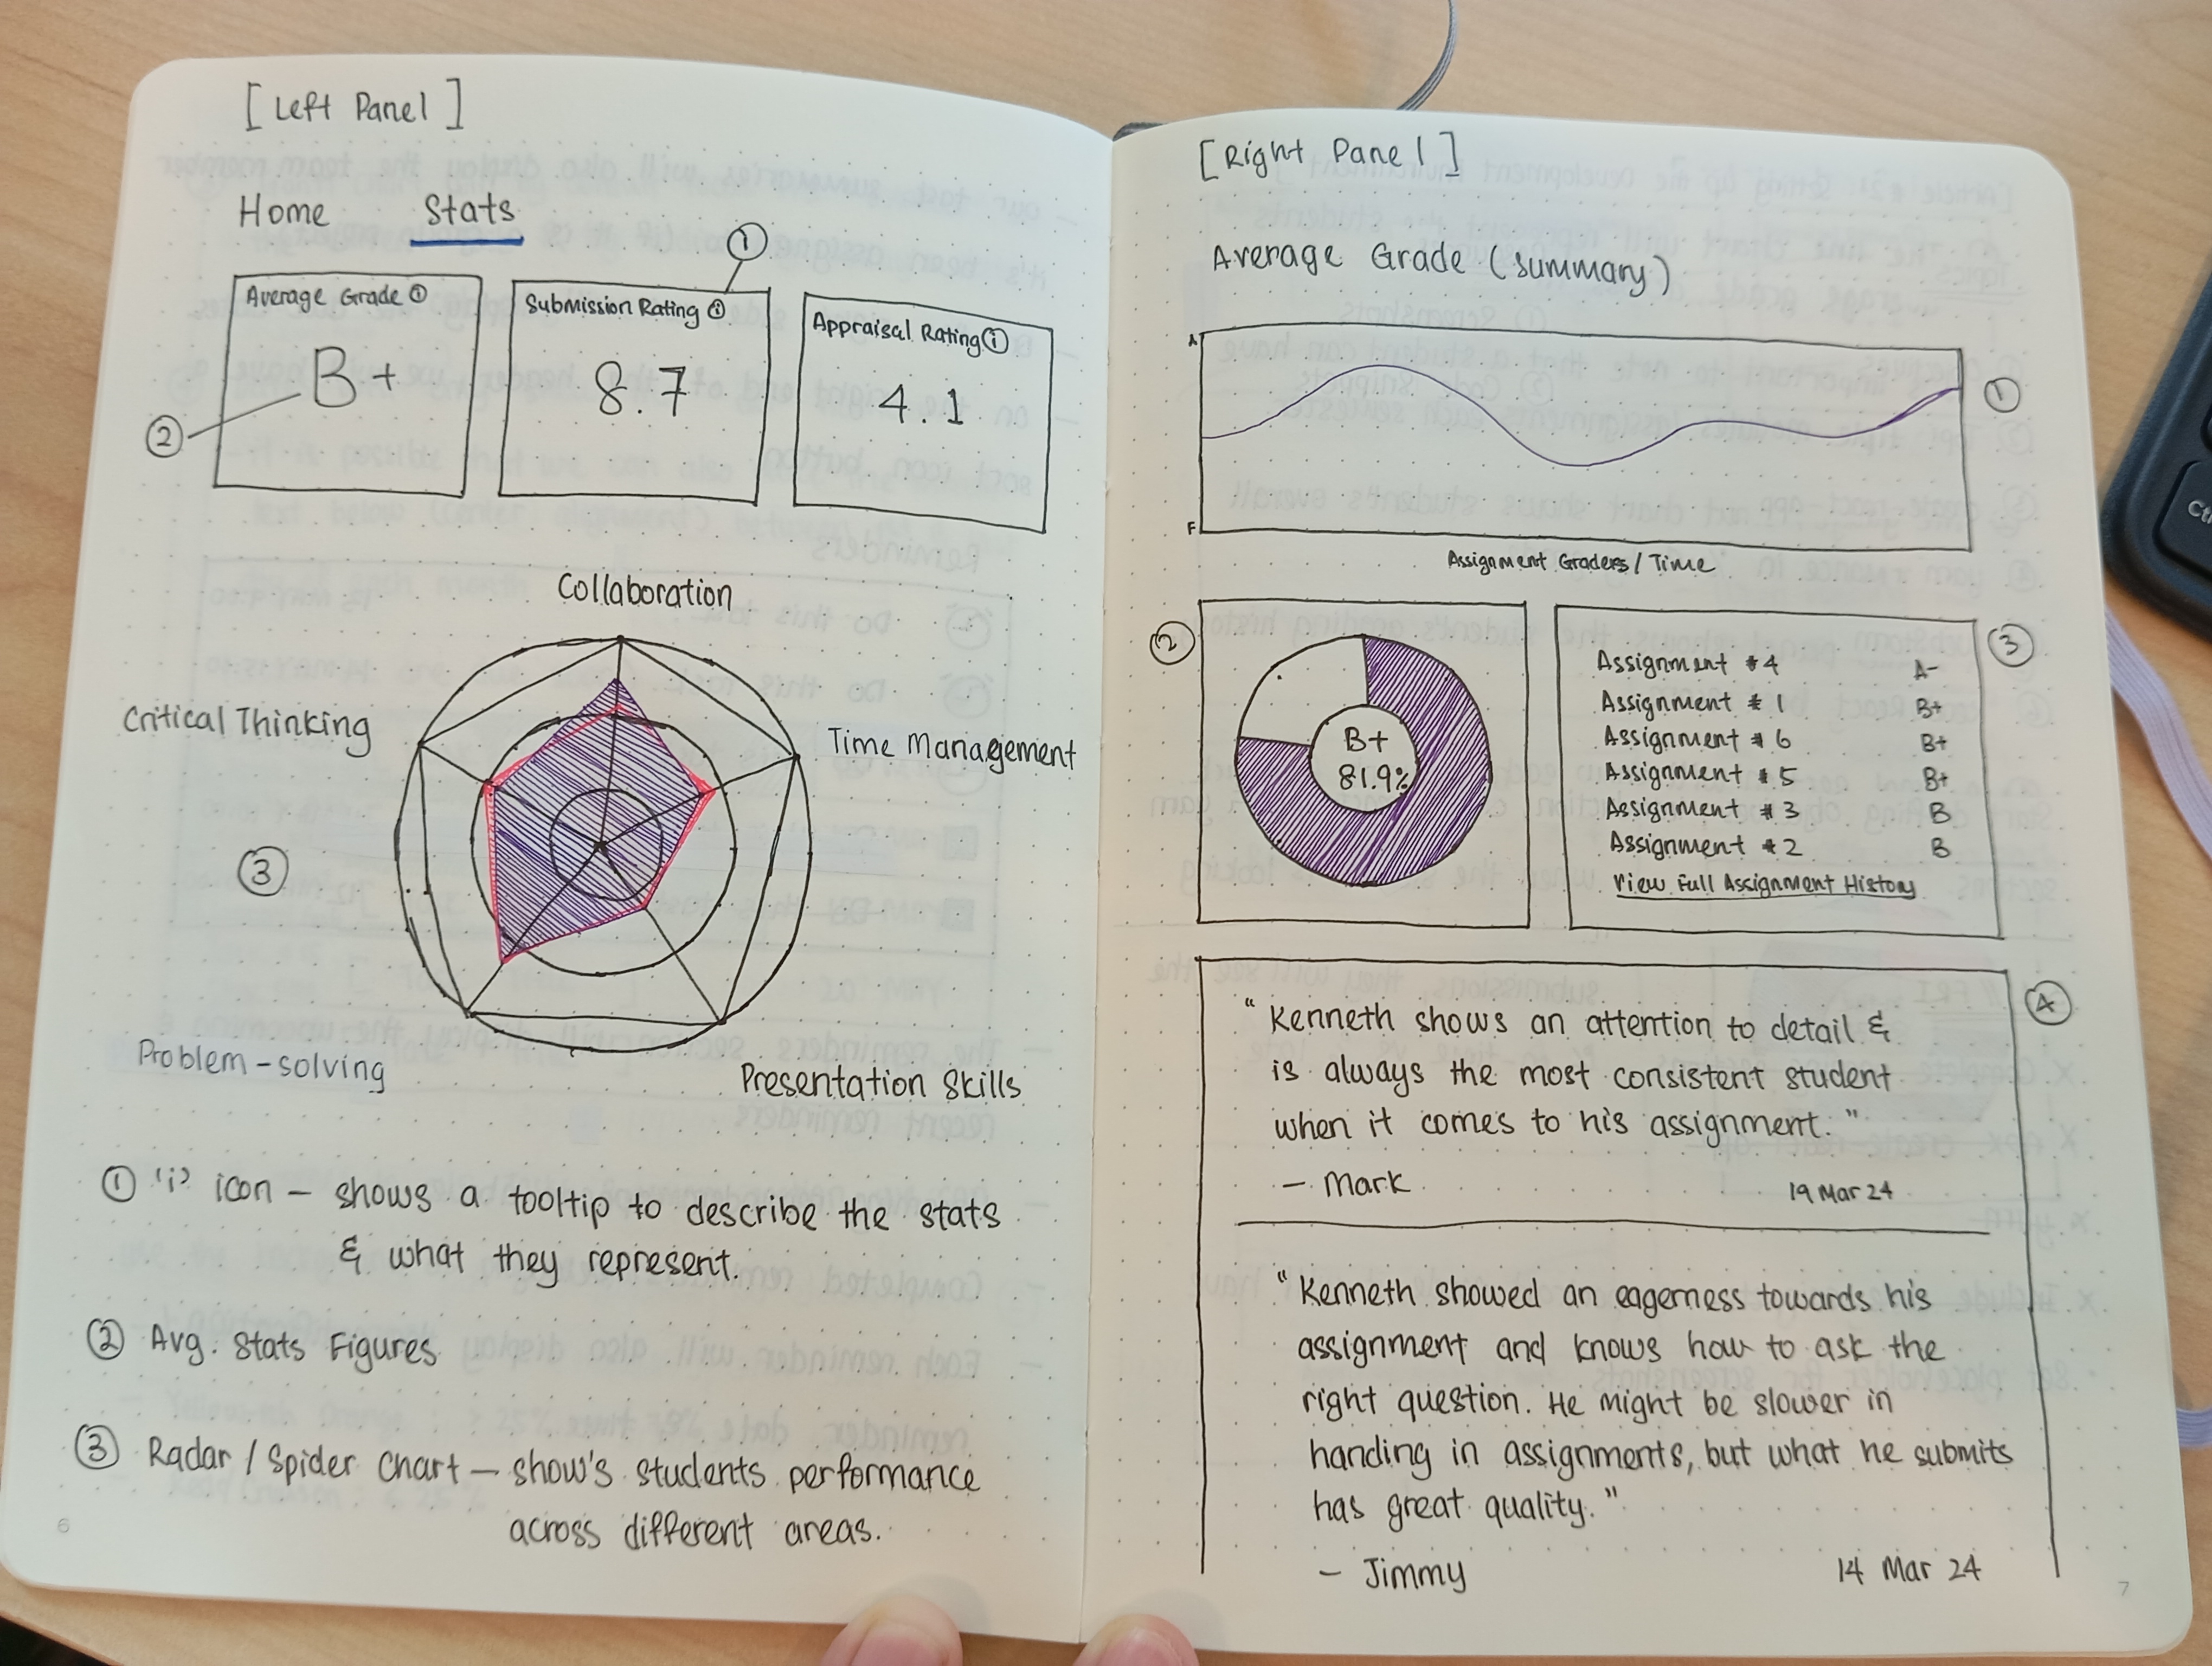 [Left Panel]
Home Stats
①
Average Grade ⓘ
B+
②
Submission Rating ⓘ
8.7
Appraisal Rating ⓘ
4.1
Collaboration
Critical Thinking
Time Management
③
Problem-solving
Presentation Skills
① 'i' icon – shows a tooltip to describe the stats
& what they represent.
② Avg. Stats Figures
③ Radar / Spider Chart – show's students performance
across different areas.
6
[Right Panel]
Average Grade (summary)
A
F
①
Assignment Graders / Time
②
B+
81.9%
③
Assignment #4 A-
Assignment #1 B+
Assignment #6 B+
Assignment #5 B+
Assignment #3 B
Assignment #2 B
View Full Assignment History
④
"Kenneth shows an attention to detail &
is always the most consistent student
when it comes to his assignment."
– Mark 19 Mar 24
"Kenneth showed an eagerness towards his
assignment and knows how to ask the
right question. He might be slower in
handing in assignments, but what he submits
has great quality."
– Jimmy 14 Mar 24
7